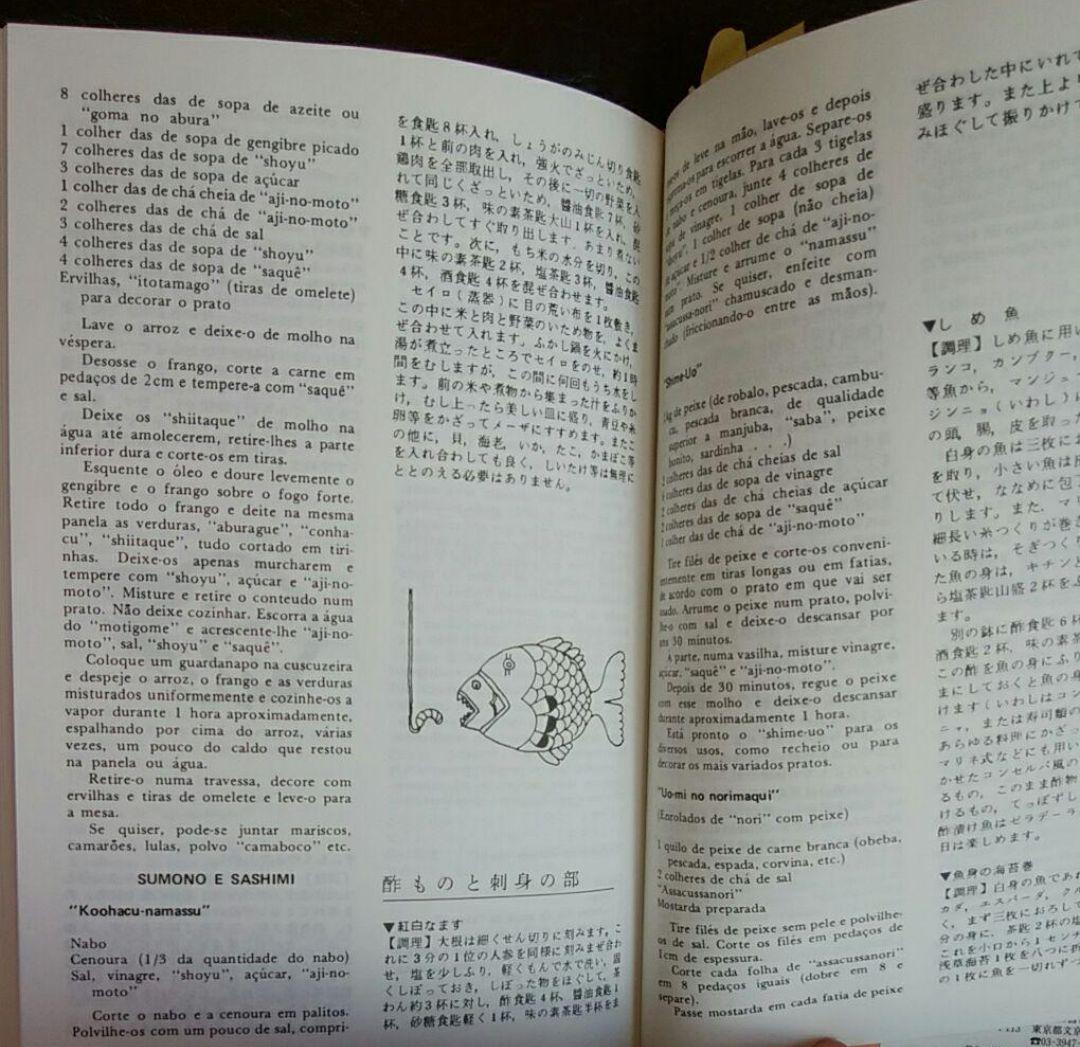 8 colheres das de sopa de azeite ou
“goma no abura”
1 colher das de sopa de gengibre picado
7 colheres das de sopa de “shoyu”
3 colheres das de sopa de açúcar
1 colher das de chá cheia de “aji-no-moto”
2 colheres das de chá de “aji-no-moto”
3 colheres das de chá de sal
4 colheres das de sopa de “shoyu”
4 colheres das de sopa de “saquê”
Ervilhas, “itotamago” (tiras de omelete)
para decorar o prato
Lave o arroz e deixe-o de molho na
véspera.
Desosse o frango, corte a carne em
pedaços de 2cm e tempere-a com “saquê”
e sal.
Deixe os “shiitaque” de molho na
água até amolecerem, retire-lhes a parte
inferior dura e corte-os em tiras.
Esquente o óleo e doure levemente o
gengibre e o frango sobre o fogo forte.
Retire todo o frango e deite na mesma
panela as verduras, “aburague”, “conha-
cu”, “shiitaque”, tudo cortado em tiri-
nhas. Deixe-os apenas murcharem e
tempere com “shoyu”, açúcar e “aji-no-
moto”. Misture e retire o conteúdo num
prato. Não deixe cozinhar. Escorra a água
do “motigome” e acrescente-lhe “aji-no-
moto”, sal, “shoyu” e “saquê”.
Coloque um guardanapo na cuscuzeira
e despeje o arroz, o frango e as verduras
misturados uniformemente e cozinhe-os a
vapor durante 1 hora aproximadamente,
espalhando por cima do arroz, várias
vezes, um pouco do caldo que restou
na panela ou água.
Retire-o numa travessa, decore com
ervilhas e tiras de omelete e leve-o para
a mesa.
Se quiser, pode-se juntar mariscos,
camarões, lulas, polvo “camaboco” etc.
SUMONO E SASHIMI
“Koohacu-namassu”
Nabo
Cenoura (1/3 da quantidade do nabo)
Sal, vinagre, “shoyu”, açúcar, “aji-no-
moto”
Corte o nabo e a cenoura em palitos.
Polvilhe-os com um pouco de sal, compri-
を食匙8杯入れ，しょうがのみじん切り食匙
1杯と前の肉を入れ，強火でざっといため，
鶏肉を全部取出し，その後に一切の野菜を入
れて同じくざっといため，醬油食匙7杯，砂
糖食匙3杯，味の素茶匙大山1杯を入れ，混
ぜ合わしてすぐ取り出します．あまり煮ない
ことです。次に，もち米の水分を切り，この
中に味の素茶匙2杯，塩茶匙3杯，醬油食匙
4杯，酒食匙4杯を混ぜ合わせます。
セイロ（蒸器）に目の荒い布を1枚敷き，
この中に米と肉と野菜のいため物を，よくま
ぜ合わせて入れます。ふかし鍋を火にかけ，
湯が煮立ったところでセイロをのせ，約1時
間をむしますが，この間に何回もうち水をし
ます。前の米や煮物から集まった汁をふりか
け，むし上ったら美しい皿に盛り，青豆や糸
卵等をかざってメーザにすすめます。またこ
の他に，貝，海老，いか，たこ，かまぼこ等
を入れ合わしても良く，しいたけ等は無理に
ととのえる必要はありません。
酢ものと刺身の部
▼紅白なます
【調理】大根は細くせん切りに刻みます。こ
れに3分の1位の人参を同様に刻みまぜ合わ
せ，塩を少しふり，軽くもんで水で洗い，固
くしぼっておき，しぼった物をほぐして，茶
わん約3杯に対し，酢食匙4杯，醬油食匙1
杯，砂糖食匙軽く1杯，味の素茶匙半杯をま
de leve na mão, lave-os e depois
para escorrer a água. Separe-os
em tigelas. Para cada 3 tigelas
nabo e cenoura, junte 4 colheres de
de vinagre, 1 colher de sopa de
“shoyu”, 1 colher de sopa (não cheia)
de açúcar e 1/2 colher de chá de “aji-no-
moto”. Misture e arrume o “namassu”
num prato. Se quiser, enfeite com
“assacussa-nori” chamuscado e desman-
chado (friccionando-o entre as mãos).
“Shime-Uo”
kg de peixe (de robalo, pescada, cambu-
cu, pescada branca, de qualidade
superior a manjuba, “saba”, peixe
bonito, sardinha . . .)
2 colheres das de chá cheias de sal
colheres das de sopa de vinagre
2 colheres das de chá cheias de açúcar
2 colheres das de sopa de “saquê”
1 colher das de chá de “aji-no-moto”
Tire filés de peixe e corte-os conveni-
entemente em tiras longas ou em fatias,
de acordo com o prato em que vai ser
usado. Arrume o peixe num prato, polvi-
lhe-o com sal e deixe-o descansar por
uns 30 minutos.
À parte, numa vasilha, misture vinagre,
açúcar, “saquê” e “aji-no-moto”.
Depois de 30 minutos, regue o peixe
com esse molho e deixe-o descansar
durante aproximadamente 1 hora.
Está pronto o “shime-uo” para os
diversos usos, como recheio ou para
decorar os mais variados pratos.
“Uo-mi no norimaqui”
(Enrolados de “nori” com peixe)
1 quilo de peixe de carne branca (obeba,
pescada, espada, corvina, etc.)
2 colheres de chá de sal
“Assacussanori”
Mostarda preparada
Tire filés de peixe sem pele e polvilhe-
os de sal. Corte os filés em pedaços de
1cm de espessura.
Corte cada folha de “assacussanori”
em 8 pedaços iguais (dobre em 8 e
separe).
Passe mostarda em cada fatia de peixe
ぜ合わした中にいれて
盛ります。また上より
みほぐして振りかけて
▼しめ魚
【調理】しめ魚に用い
ランコ，カンブクー，
等魚から，マンジュ
ジンニョ(いわし)に
の頭，腸，皮を取った
白身の魚は三枚にお
を取り，小さい魚は皮
て伏せ，ななめに包丁
りします。また．マ
細長い糸つくりが巻き
いる時は，そぎつくり
た魚の身は，キチンと
ら塩茶匙山盛2杯をふ
ます。
別の鉢に酢食匙6杯
酒食匙2杯，味の素茶
この酢を魚の身にふり
まにしておくと魚の身
けます(いわしはコン
ニャ，または寿司類の
あらゆる料理にかざっ
マリネ式などにも用い
かせたコンセルバ風の
るもの，このまま酢物
けるもの，てっぽずし
酢漬け魚はゼラデーラ
日は楽しめます。
▼魚身の海苔巻
【調理】白身の魚であれ
カダ，エスパーダ，クル
く，まず三枚におろして
分の身に，茶匙2杯の塩
これを小口から1センチ
浅草海苔1枚を八つに折
の1枚に魚を一切れずつ
東京都文京
☎03-3947-